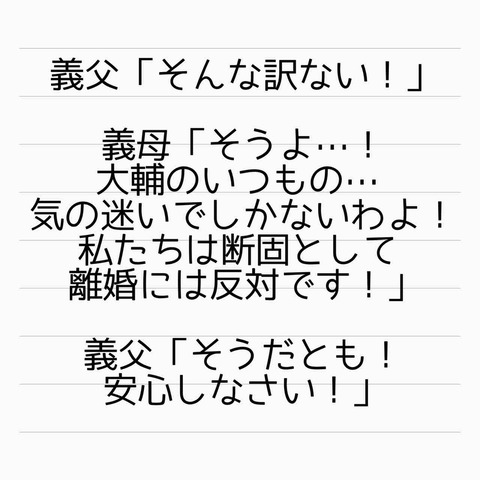 義父「そんな訳ない！」
義母「そうよ…！
大輔のいつもの…
気の迷いでしかないわよ！
私たちは断固として
離婚には反対です！」
義父「そうだとも！
安心しなさい！」